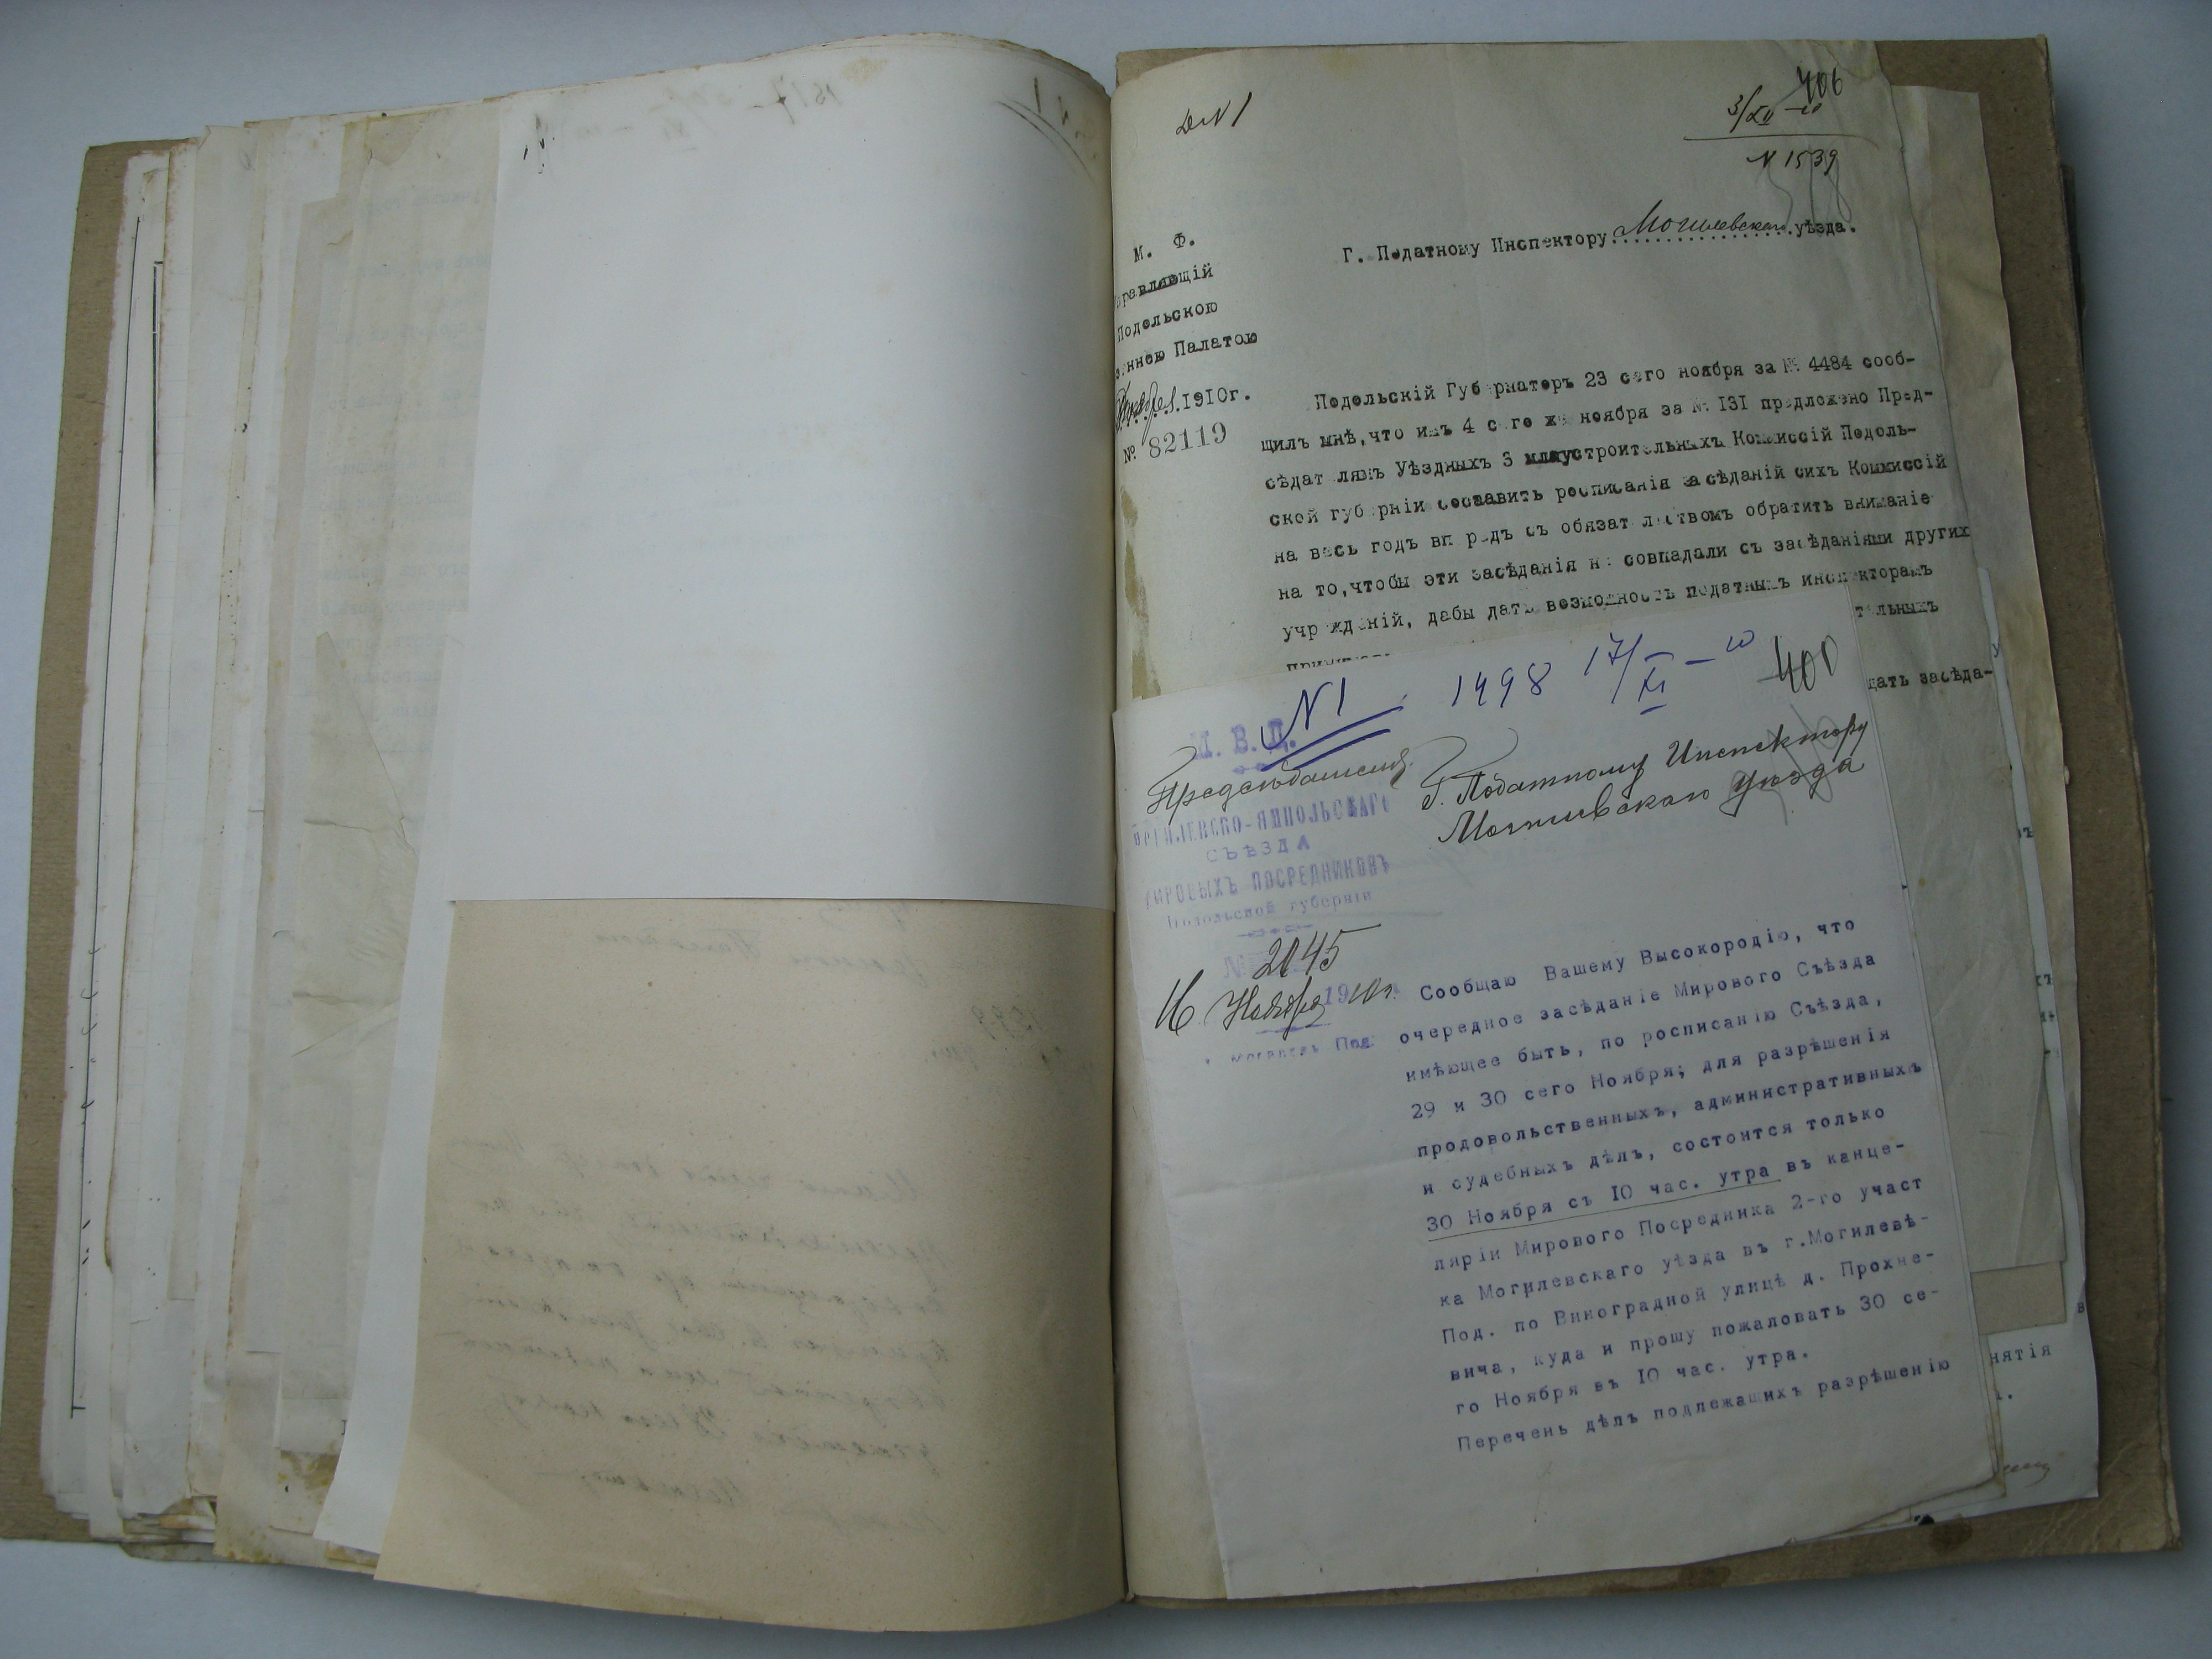 № 1
406
3/XII – 10
№ 1539
М. Ф.
равляющій
Подольскою
зенною Палатою
1910г.
№ 82119
Г. Податному Инспектору Могилевскаго уѣзда.
Подольскій Губернаторъ 23 сего ноября за № 4484 сооб-
щилъ мнѣ, что имъ 4 сего же ноября за № 131 предложено Пред-
сѣдателямъ Уѣздныхъ Землеустроительныхъ Коммиссій Подоль-
ской губерніи составить росписанія засѣданій сихъ Коммиссій
на весь годъ впередъ съ обязательствомъ обратить вниманіе
на то, чтобы эти засѣданія не совпадали съ засѣданіями других
учрежденій, дабы дать возможность податнымъ инспекторамъ
тельныхъ
дать засѣда-
№ 1
1498 17/XI – 10
400
М. В. Д.
Предсѣдатель
ОГИЛЕВСКО-ЯМПОЛЬСКАГО
СЪѢЗДА
МИРОВЫХЪ ПОСРЕДНИКОВЪ
Подольской губерніи
№ 2045
16 Ноября 1910 г.
г. Могилевъ Под.
Г. Податному Инспектору
Могилевскаго Уѣзда
Сообщаю Вашему Высокородію, что
очередное засѣданіе Мирового Съѣзда
имѣющее быть, по росписанію Съѣзда,
29 и 30 сего Ноября; для разрѣшенія
продовольственныхъ, административныхъ
и судебныхъ дѣлъ, состоится только
30 Ноября съ 10 час. утра въ канце-
ляріи Мирового Посредника 2-го участ
ка Могилевскаго уѣзда въ г.Могилевѣ-
Под. по Виноградной улицѣ д. Прохне-
вича, куда и прошу пожаловать 30 се-
го Ноября въ 10 час. утра.
Перечень дѣлъ подлежащихъ разрѣшенію
нятія